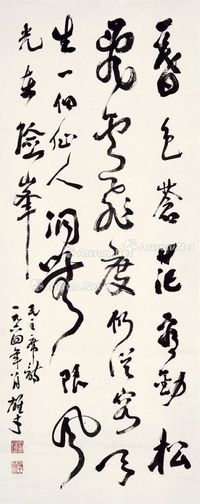 暮色蒼茫看勁松
亂雲飛渡仍從容天
生一個仙人洞無限風
光在險峰
毛主席詩
一九六四年八月雄才